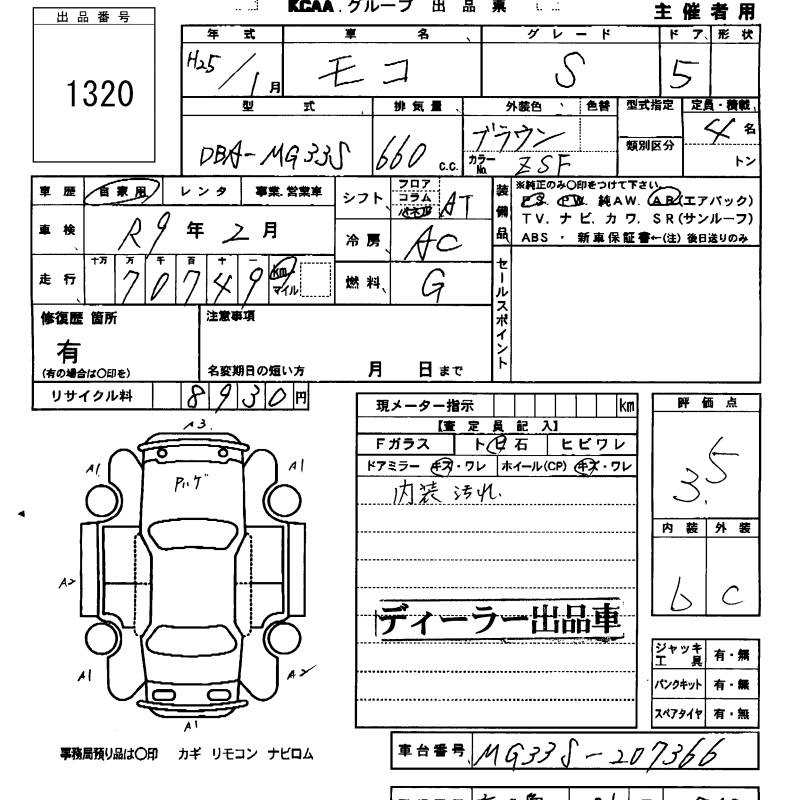 KCAA.グループ 出品票
主催者用
出品番号
1320
年式 車名 グレード ドア 形状
H25/1月 モコ S 5
型式 排気量 外装色 色替 型式指定 定員・積載
DBA-MG33S 660 C.C. ブラウン 類別区分 4名
カラーNo. ZSF トン
車歴 自家用 レンタ 事業.営業車
シフト フロア コラム インパネ AT
車検 R9年2月
冷房 AC
走行 十万 万 千 百 十 一 km マイル
70749
燃料 G
装備品
※純正のみ〇印をつけて下さい
P.S. P.W. 純AW. AB(エアバック)
TV. ナビ. カワ. SR(サンルーフ)
ABS ・ 新車保証書←(注) 後日送りのみ
セールスポイント
修復歴 箇所
有
(有の場合は〇印を)
注意事項
名変期日の短い方 月 日まで
リサイクル料 8930円
現メーター指示 km
【査定員記入】
Fガラス トビ石 ヒビワレ
ドアミラー キズ・ワレ ホイール(CP) キズ・ワレ
内装汚れ
ディーラー出品車
評価点
3.5
内装 外装
b c
ジャッキ工具 有・無
パンクキット 有・無
スペアタイヤ 有・無
A3.
A1
A1
Pハゲ
A2
A1
A2
A1
事務局預り品は〇印 カギ リモコン ナビロム
車台番号 MG33S-207366